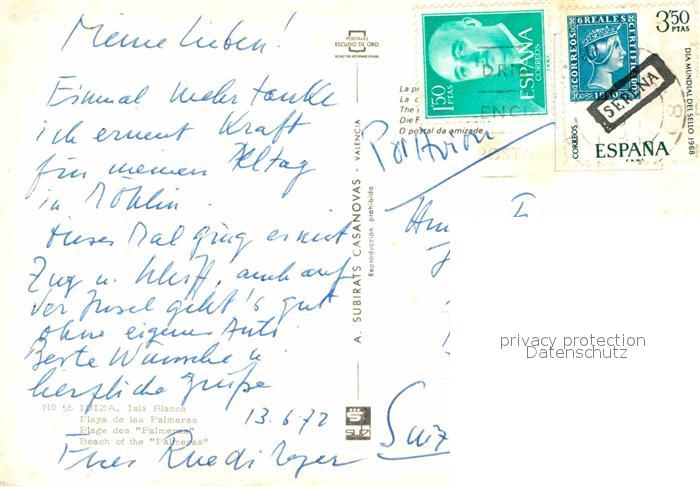 Meine Lieben!
Einmal mehr tanke
ich erneut Kraft
für meinen Alltag
in Möhlin.
Dieses Mal ging es mit
Zug u. Schiff, auch auf
der Insel geht's gut
ohne eigenes Auto.
Beste Wünsche u.
herzliche Grüße
13.6.72
Nº 56 IBIZA, Isla Blanca
Playa de las Palmeras
Plage des "Palmeras"
Beach of the "Palmeras"
POSTALES
ESCUDO DE ORO
REGISTRO INTERNACIONAL
A. SUBIRATS CASANOVAS - VALENCIA
Reproducción prohibida
La p
La c
The
Die F
O postal da amizade
1'50
PTAS
ESPAÑA
CORREOS
CORREOS
6 REALES
CERTIFICADO
3'50
PTAS
DIA MUNDIAL DEL SELLO 1968
CORREOS
ESPAÑA
SERENA
Por Avion
Suiz
privacy protection
Datenschutz